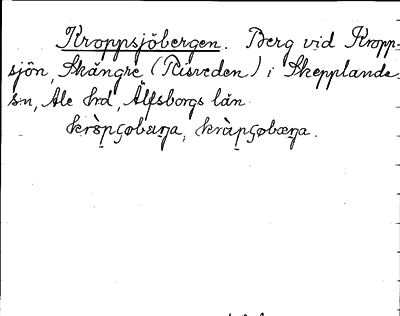 Kroppsjöbergen. Berg vid Kropp-
sjön, Skångre (Risveden) i Skepplanda
sn, Ale hrd, Älfsborgs län.
krɔ̀pçøbæŋa, kràpçøbæŋa.